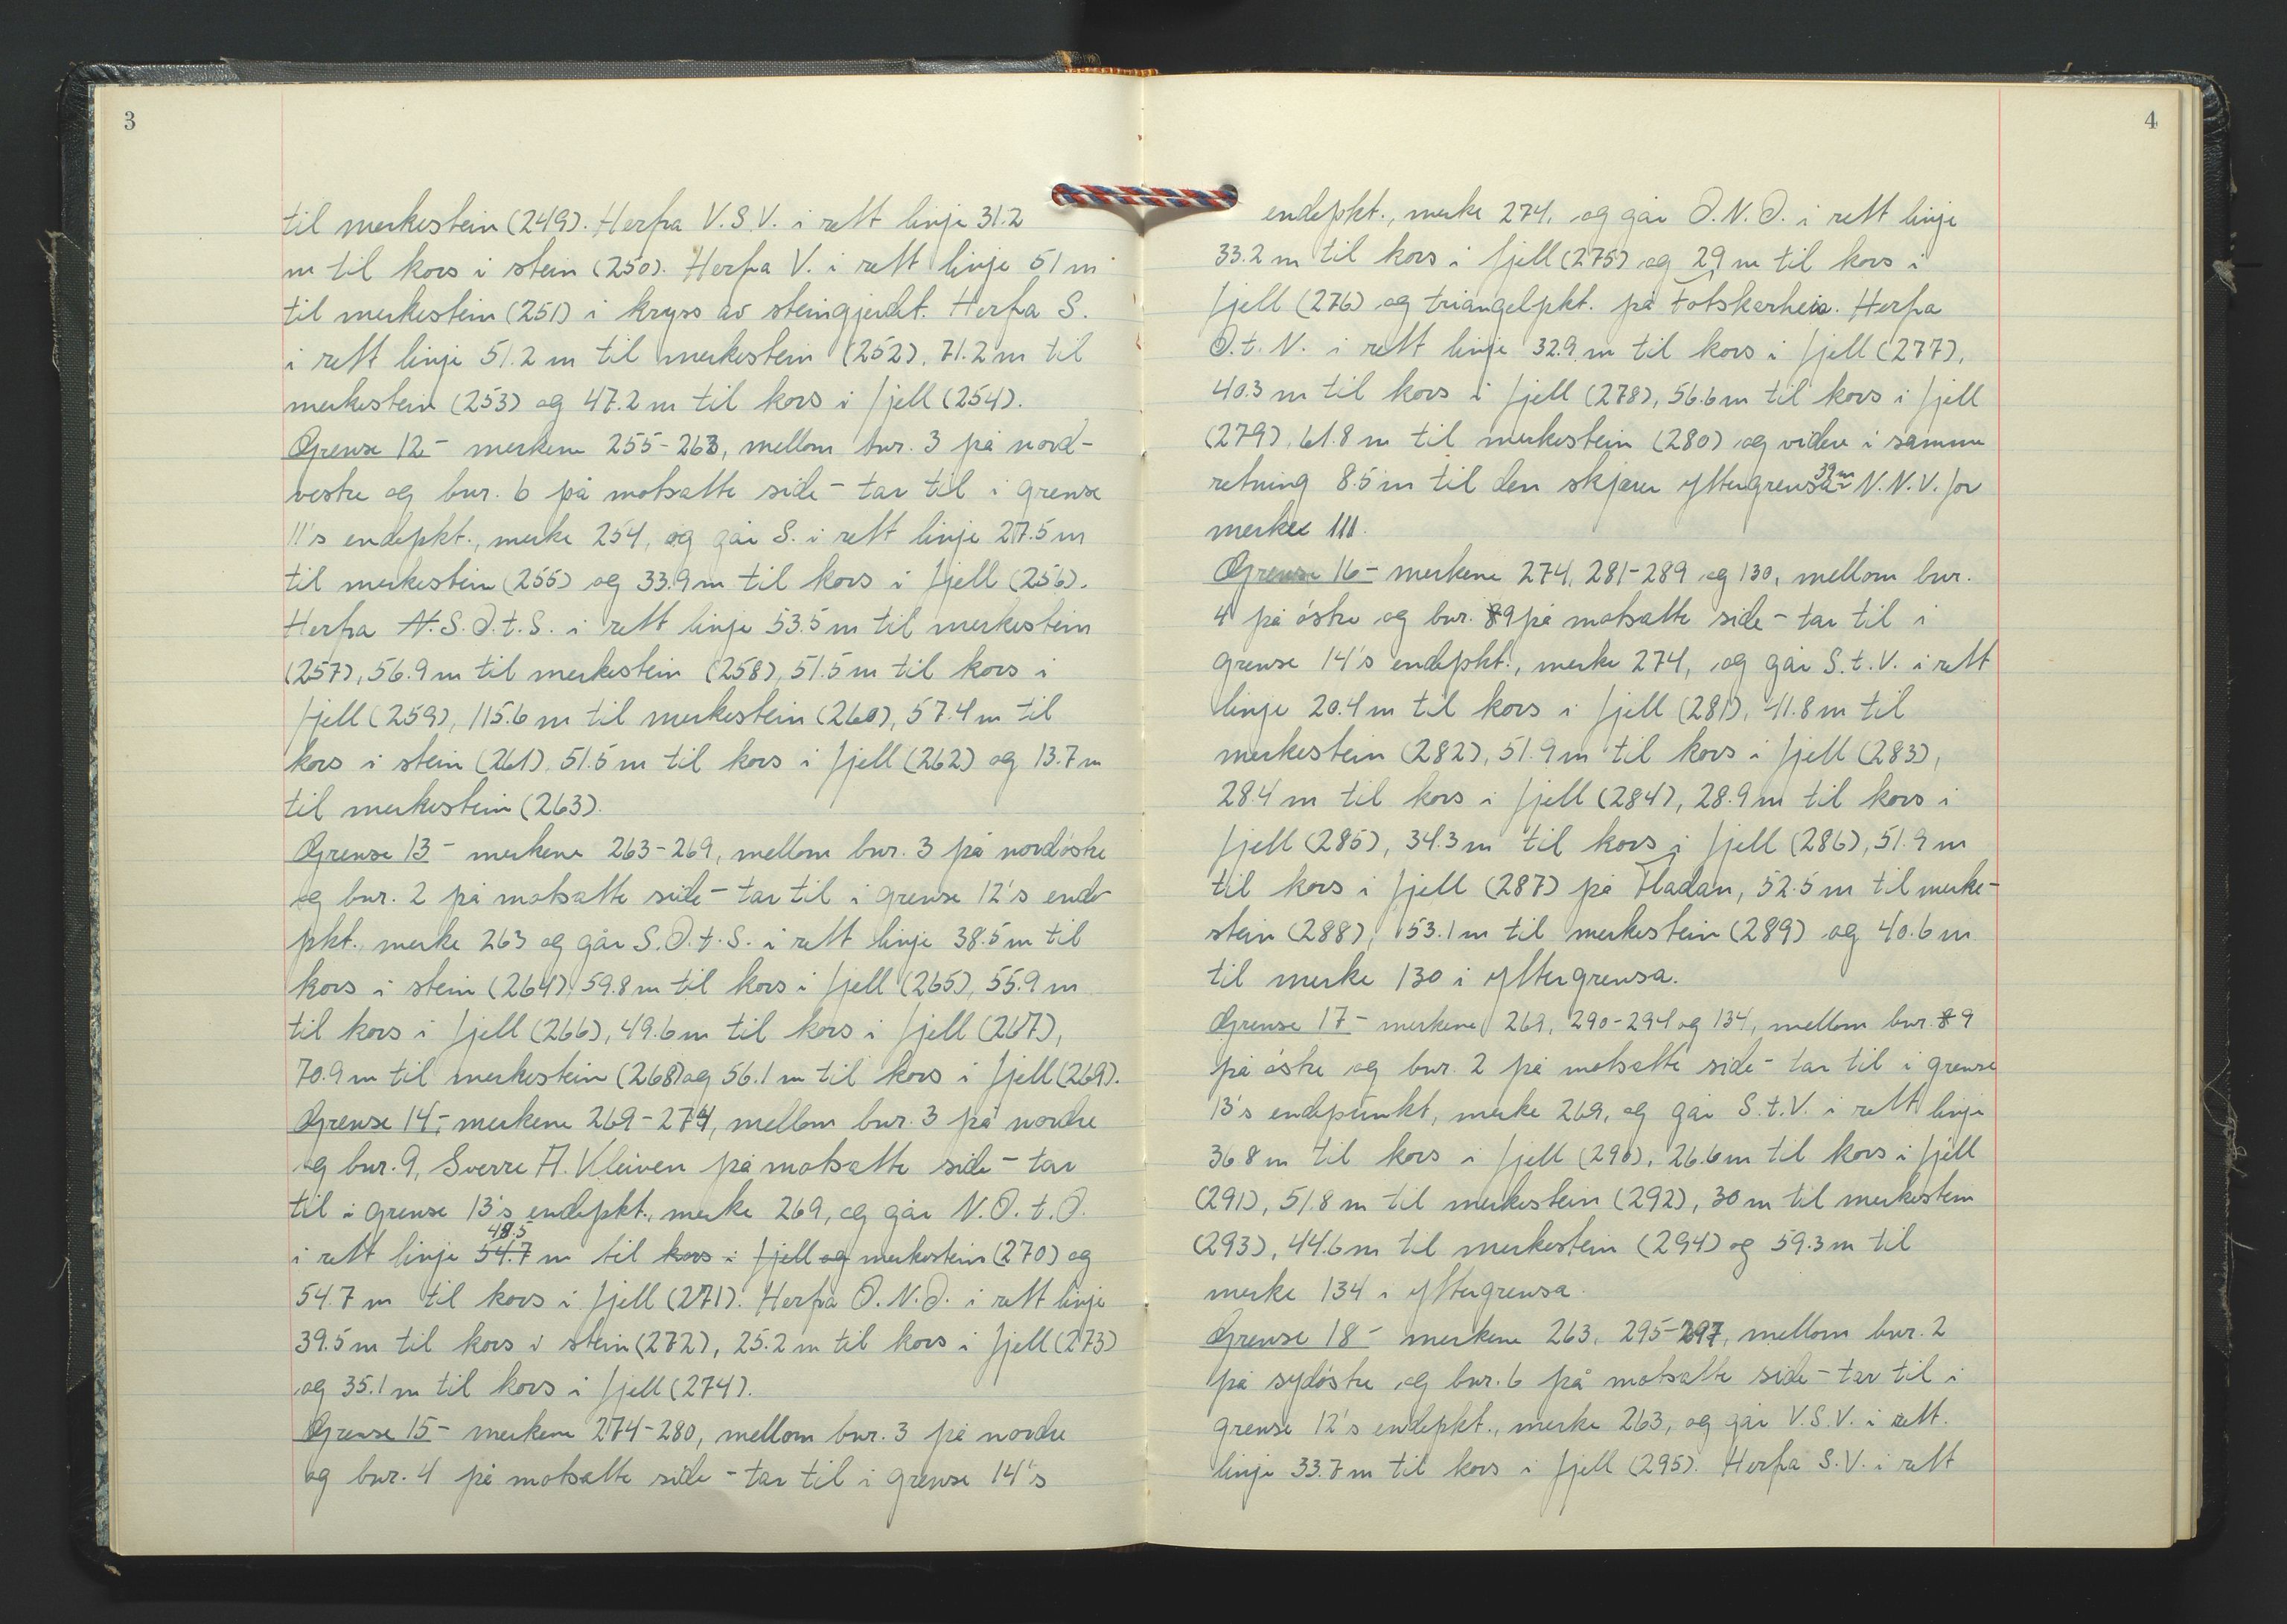 3
til merkestein (249). Herfra V.S.V. i rett linje 31.2
m til kors i stein (250). Herfra V. i rett linje 51 m
til merkestein (251) i kryss av steingjerdet. Herfra S.
i rett linje 51.2 m til merkestein (252), 71.2 m til
merkestein (253) og 47.2 m til kors i fjell (254).
Grense 12 - merkene 255-263, mellom bnr. 3 på nord-
vestre og bnr. 6 på motsatte side - tar til i grense
11's endepkt., merke 254, og går S. i rett linje 27.5 m
til merkestein (255) og 33.9 m til kors i fjell (256).
Herfra N. S.Ø.t.S. i rett linje 53.5 m til merkestein
(257), 56.9 m til merkestein (258), 51.5 m til kors i
fjell (259), 115.6 m til merkestein (260), 57.4 m til
kors i stein (261), 51.5 m til kors i fjell (262) og 13.7 m
til merkestein (263).
Grense 13 - merkene 263-269, mellom bnr. 3 på nordøstre
og bnr. 2 på motsatte side - tar til i grense 12's ende-
pkt., merke 263 og går S.Ø.t.S. i rett linje 38.5 m til
kors i stein (264), 59.8 m til kors i fjell (265), 55.9 m
til kors i fjell (266), 49.6 m til kors i fjell (267),
70.9 m til merkestein (268) og 56.1 m til kors i fjell (269).
Grense 14 - merkene 269-274, mellom bnr. 3 på nordre
og bnr. 9, Sverre A. Kleiven på motsatte side - tar
til i grense 13's endepkt., merke 269, og går N.Ø.t.Ø.
48.5
i rett linje 54.7 m til kors i fjell og merkestein (270) og
54.7 m til kors i fjell (271). Herfra Ø.N.Ø. i rett linje
39.5 m til kors i stein (272), 25.2 m til kors i fjell (273)
og 35.1 m til kors i fjell (274).
Grense 15 - merkene 274-280, mellom bnr. 3 på nordre
og bnr. 4 på motsatte side - tar til i grense 14's
4
endepkt., merke 274, og går Ø.N.Ø. i rett linje
33.2 m til kors i fjell (275) og 29 m til kors i
fjell (276) og triangelpkt. på Totskarheia. Herfra
Ø.t.N. i rett linje 32.9 m til kors i fjell (277),
40.3 m til kors i fjell (278), 56.6 m til kors i fjell
(279), 61.8 m til merkestein (280) og videre i samme
retning 8.5 m til den skjærer yttergrensa 39 m N.N.V. for
merke 111.
Grense 16 - merkene 274, 281-289 og 130, mellom bnr.
4 på østre og bnr. 8 9 på motsatte side - tar til i
grense 14's endepkt., merke 274, og går S.t.V. i rett
linje 20.4 m til kors i fjell (281), 41.8 m til
merkestein (282), 51.9 m til kors i fjell (283),
28.4 m til kors i fjell (284), 28.9 m til kors i
fjell (285), 34.3 m til kors i fjell (286), 51.9 m
til kors i fjell (287) på Hladan, 52.5 m til merke-
stein (288), 53.1 m til merkestein (289) og 40.6 m
til merke 130 i yttergrensa.
Grense 17 - merkene 269, 290-294 og 134, mellom bnr. 8 9
på østre og bnr. 2 på motsatte side - tar til i grense
13's endepunkt, merke 269, og går S.t.V. i rett linje
36.8 m til kors i fjell (290), 26.6 m til kors i fjell
(291), 51.8 m til merkestein (292), 30 m til merkestein
(293), 44.6 m til merkestein (294) og 59.3 m til
merke 134 i yttergrensa.
Grense 18 - merkene 263, 295-297, mellom bnr. 2
på sydøstre og bnr. 6 på motsatte side - tar til i
grense 12's endepkt., merke 263, og går V.S.V. i rett
linje 33.7 m til kors i fjell (295). Herfra S.V. i rett